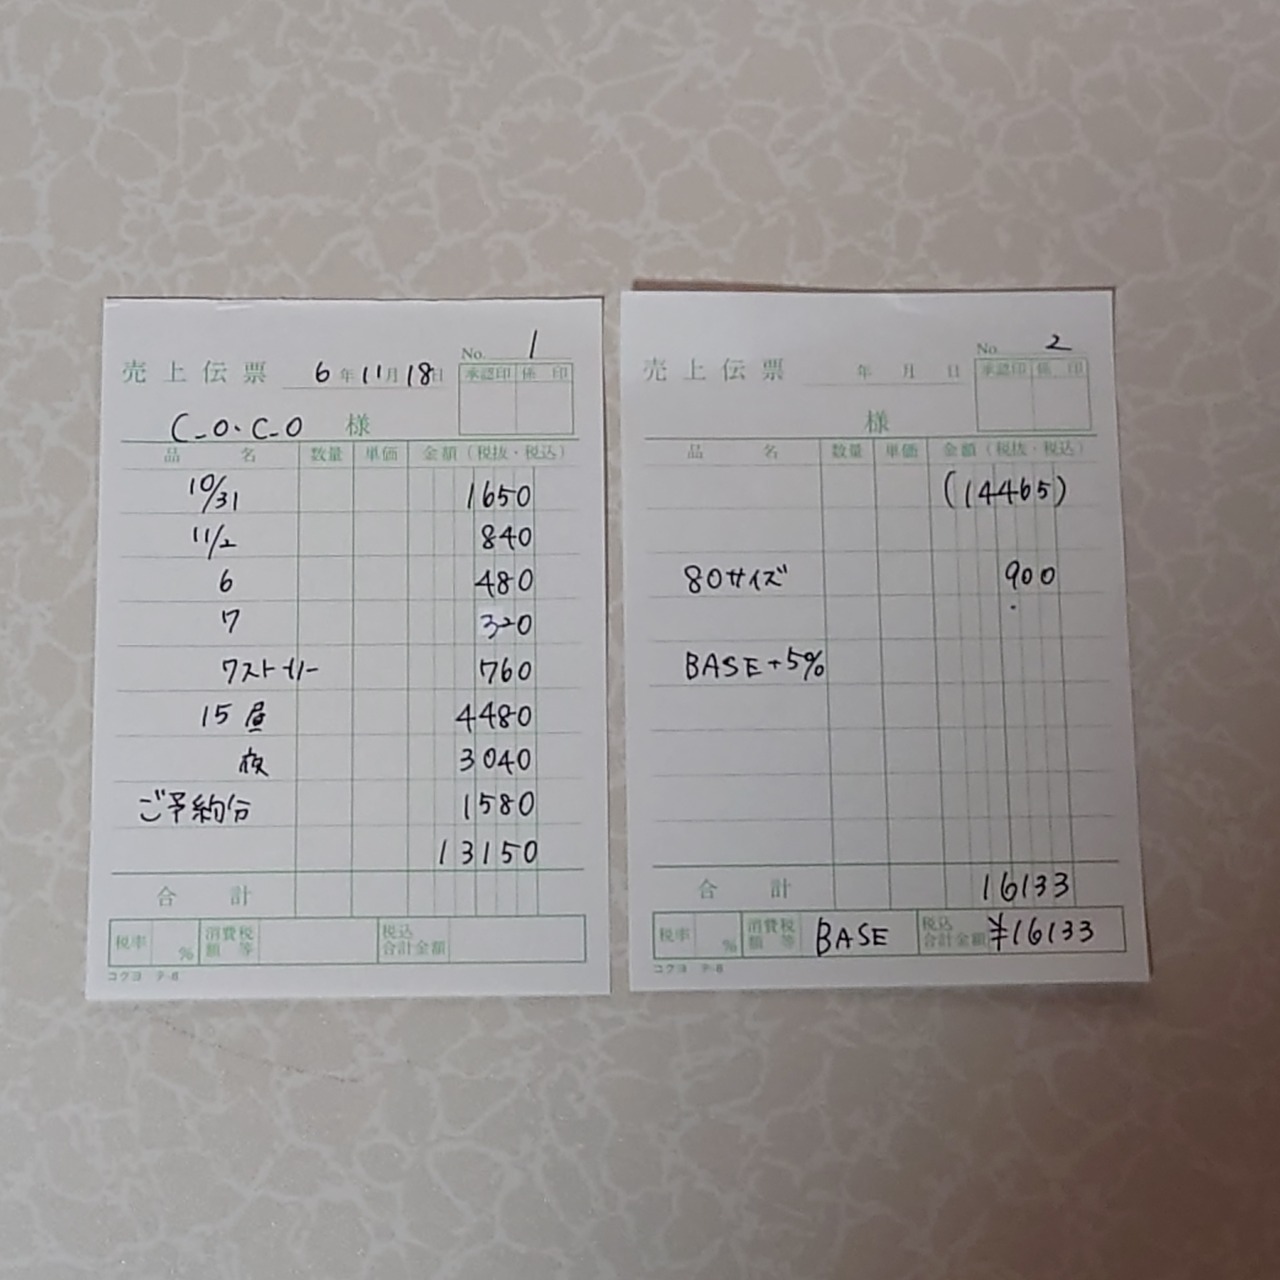 No. 1
売上伝票 6年11月18日
承認印 係印
C_O.C_O 様
品名 数量 単価 金額（税抜・税込）
10/31 1650
11/2 840
6 480
7 320
7ストーリー 760
15 昼 4480
夜 3040
ご予約分 1580
13150
合計
税率 % 消費税額等 税込合計金額
コクヨ テ-6
No. 2
売上伝票 年 月 日
承認印 係印
様
品名 数量 単価 金額（税抜・税込）
(14465)
80サイズ 900
BASE+5%
合計 16133
税率 % 消費税額等 BASE 税込合計金額 ¥16133
コクヨ テ-6